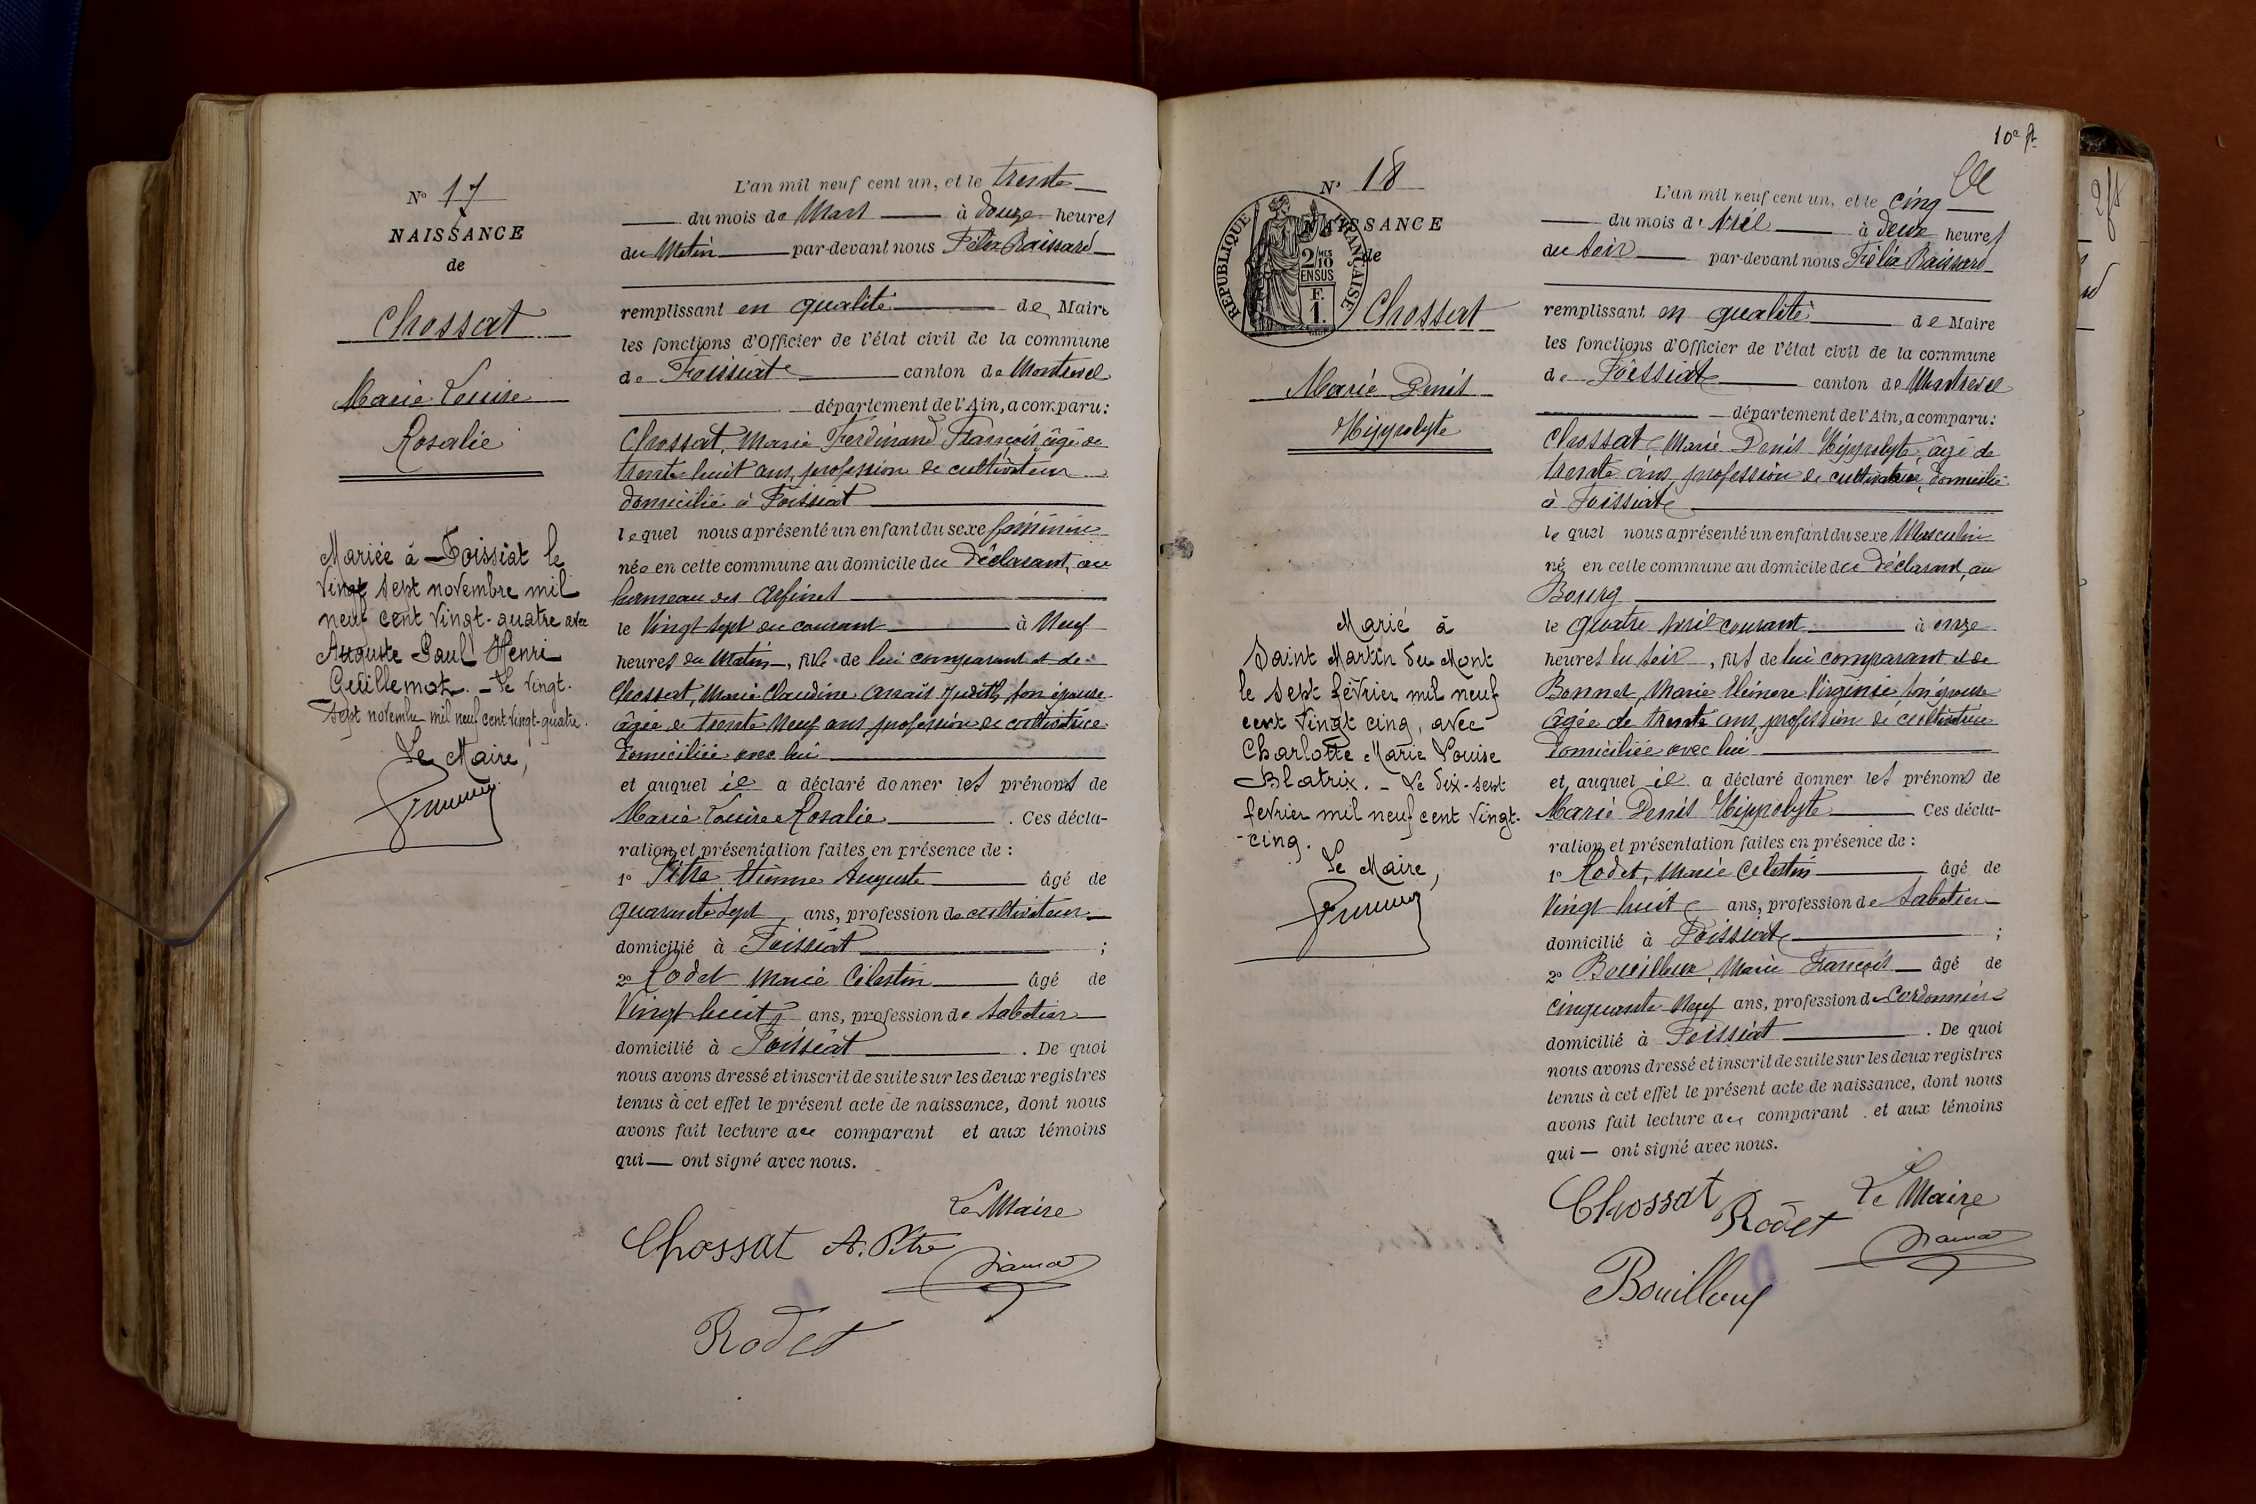 Nº 17
NAISSANCE
de
Chossat
Marie Louise
Rosalie
Mariée à Foissiat le
vingt sept novembre mil
neuf cent vingt-quatre avec
Auguste Paul Henri
Guillemot. - Le vingt-
sept novembre mil neuf cent vingt-quatre.
Le Maire,
L'an mil neuf cent un, et le trente
du mois de Mars à douze heures
du Matin par-devant nous Félix Raissard
remplissant en qualité de Maire
les fonctions d'Officier de l'état civil de la commune
de Foissiat canton de Montrevel
département de l'Ain, a comparu:
Chossat, Marie Ferdinand François, âgé de
trente huit ans, profession de cultivateur
domicilié à Foissiat
lequel nous a présenté un enfant du sexe féminin
née en cette commune au domicile du Déclarant, au
hameau des
le Vingt sept du courant à Neuf
heures du Matin, fille de lui comparant et de
Chossat, Marie Claudine Anaïs Judith, son épouse
âgée de trente neuf ans, profession de cultivatrice
domiciliée avec lui
et auquel il a déclaré donner les prénoms de
Marie Louise Rosalie. Ces décla-
ration et présentation faites en présence de :
1º Pitre Etienne Auguste âgé de
quarante sept ans, profession de cultivateur
domicilié à Foissiat ;
2º Rodet Marie Célestin âgé de
Vingt huit ans, profession de sabotier
domicilié à Foissiat. De quoi
nous avons dressé et inscrit de suite sur les deux registres
tenus à cet effet le présent acte de naissance, dont nous
avons fait lecture au comparant et aux témoins
qui — ont signé avec nous.
Le Maire
Chossat A. Pitre
Rodet
10e ft
Nº 18
NAISSANCE
de
RÉPUBLIQUE FRANÇAISE
2/10 EN SUS
F. 1.
Chossat
Marie Denis
Hippolyte
Marié à
Saint Martin du Mont
le sept février mil neuf
cent vingt cinq, avec
Charlotte Marie Louise
Blatrix. - Le dix-sept
février mil neuf cent vingt-
-cinq.
Le Maire,
L'an mil neuf cent un, et le cinq
du mois d'Avril à deux heures
du soir par-devant nous Félix Raissard
remplissant en qualité de Maire
les fonctions d'Officier de l'état civil de la commune
de Foissiat canton de Montrevel
département de l'Ain, a comparu:
Chossat Marie Denis Hippolyte, âgé de
trente ans, profession de cultivateur, domicilié
à Foissiat
lequel nous a présenté un enfant du sexe Masculin
né en cette commune au domicile du Déclarant, au
Bourg
le quatre Avril courant à onze
heures du soir, fils de lui comparant et de
Bonnet, Marie Eléonore Virginie son épouse
âgée de trente ans, profession de cultivatrice
domiciliée avec lui
et auquel il a déclaré donner les prénoms de
Marie Denis Hippolyte Ces décla-
ration et présentation faites en présence de :
1º Rodet, Marie Célestin âgé de
Vingt huit ans, profession de sabotier
domicilié à Foissiat ;
2º Bouilloux, Marie François âgé de
cinquante neuf ans, profession de cordonnier
domicilié à Foissiat. De quoi
nous avons dressé et inscrit de suite sur les deux registres
tenus à cet effet le présent acte de naissance, dont nous
avons fait lecture au comparant et aux témoins
qui — ont signé avec nous.
Chossat Rodet Le Maire
Bouilloux